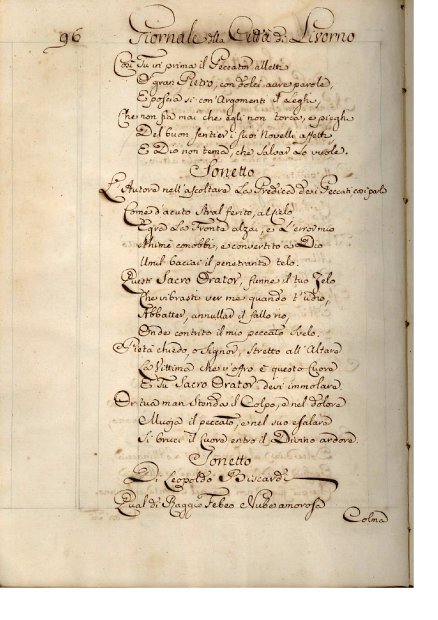 96 Giornale della Città di Livorno
Così Tu in prima il Peccator alletti
O gran Pietro, con dolci auree parole,
E poscia sì con Argomenti il leghi,
Che non fia mai che egli non torca, e pieghi
Del buon sentier i suoi Novelli affetti
E Dio non tema, che salvar Lo vuole.
Sonetto
L'Autore nell'ascoltare La Predica dei Peccati così parla
Come d'acuto Stral ferito, al Cielo
Egra La Fronte alzai, e L'error mio
Ahimè conobbi, e convertito a Dio
Umil baciai il penetrante telo.
Questi Sacro Orator, funne il tuo Zelo
Che vibrasti ver me quando t'udìo,
Abbatter, annullar il fallo rio,
Onde contrito il mio peccato svelo.
Pietà chiedo, o Signor, stretto all'Altare
La Vittima che v'offro è questo Cuore
E Tu Sacro Orator devi immolare
Or tua man Stenda il Colpo, e nel dolore
Muoja il peccato, e nel suo esalare
Si bruci il Cuore entro il Divino ardore.
Sonetto
Di Leopoldo Biscardi
Qual di Raggi Febeo Nube amorosa
Colma